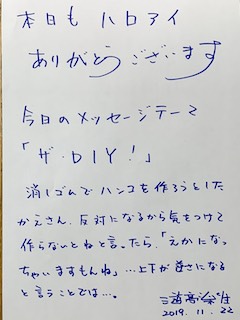 本日も ハロアイ
ありがとうございます
今日のメッセージテーマ
「ザ・DIY!」
消しゴムでハンコを作ろうとした
かえさん。反対になるから気をつけて
作らないとねと言ったら「えがになっ
ちゃいますもんね」…上下が逆さになる
と言うことでは…。
2019.11.22